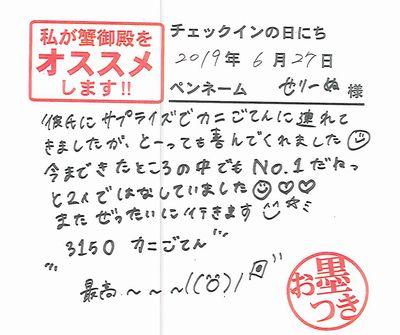 私が蟹御殿を
オススメ
します!!
チェックインの日にち
2019年 6月 27日
ペンネーム せりーぬ 様
"彼氏にサプライズでカニごてんに連れて
きましたが、とーっても喜んでくれました
今まできたところの中でもNo.1だねっ
と2人ではなしていました♡♡
またぜったいに行きます
3150 カニごてん"
最高~~~!(())! 回"
お墨つき